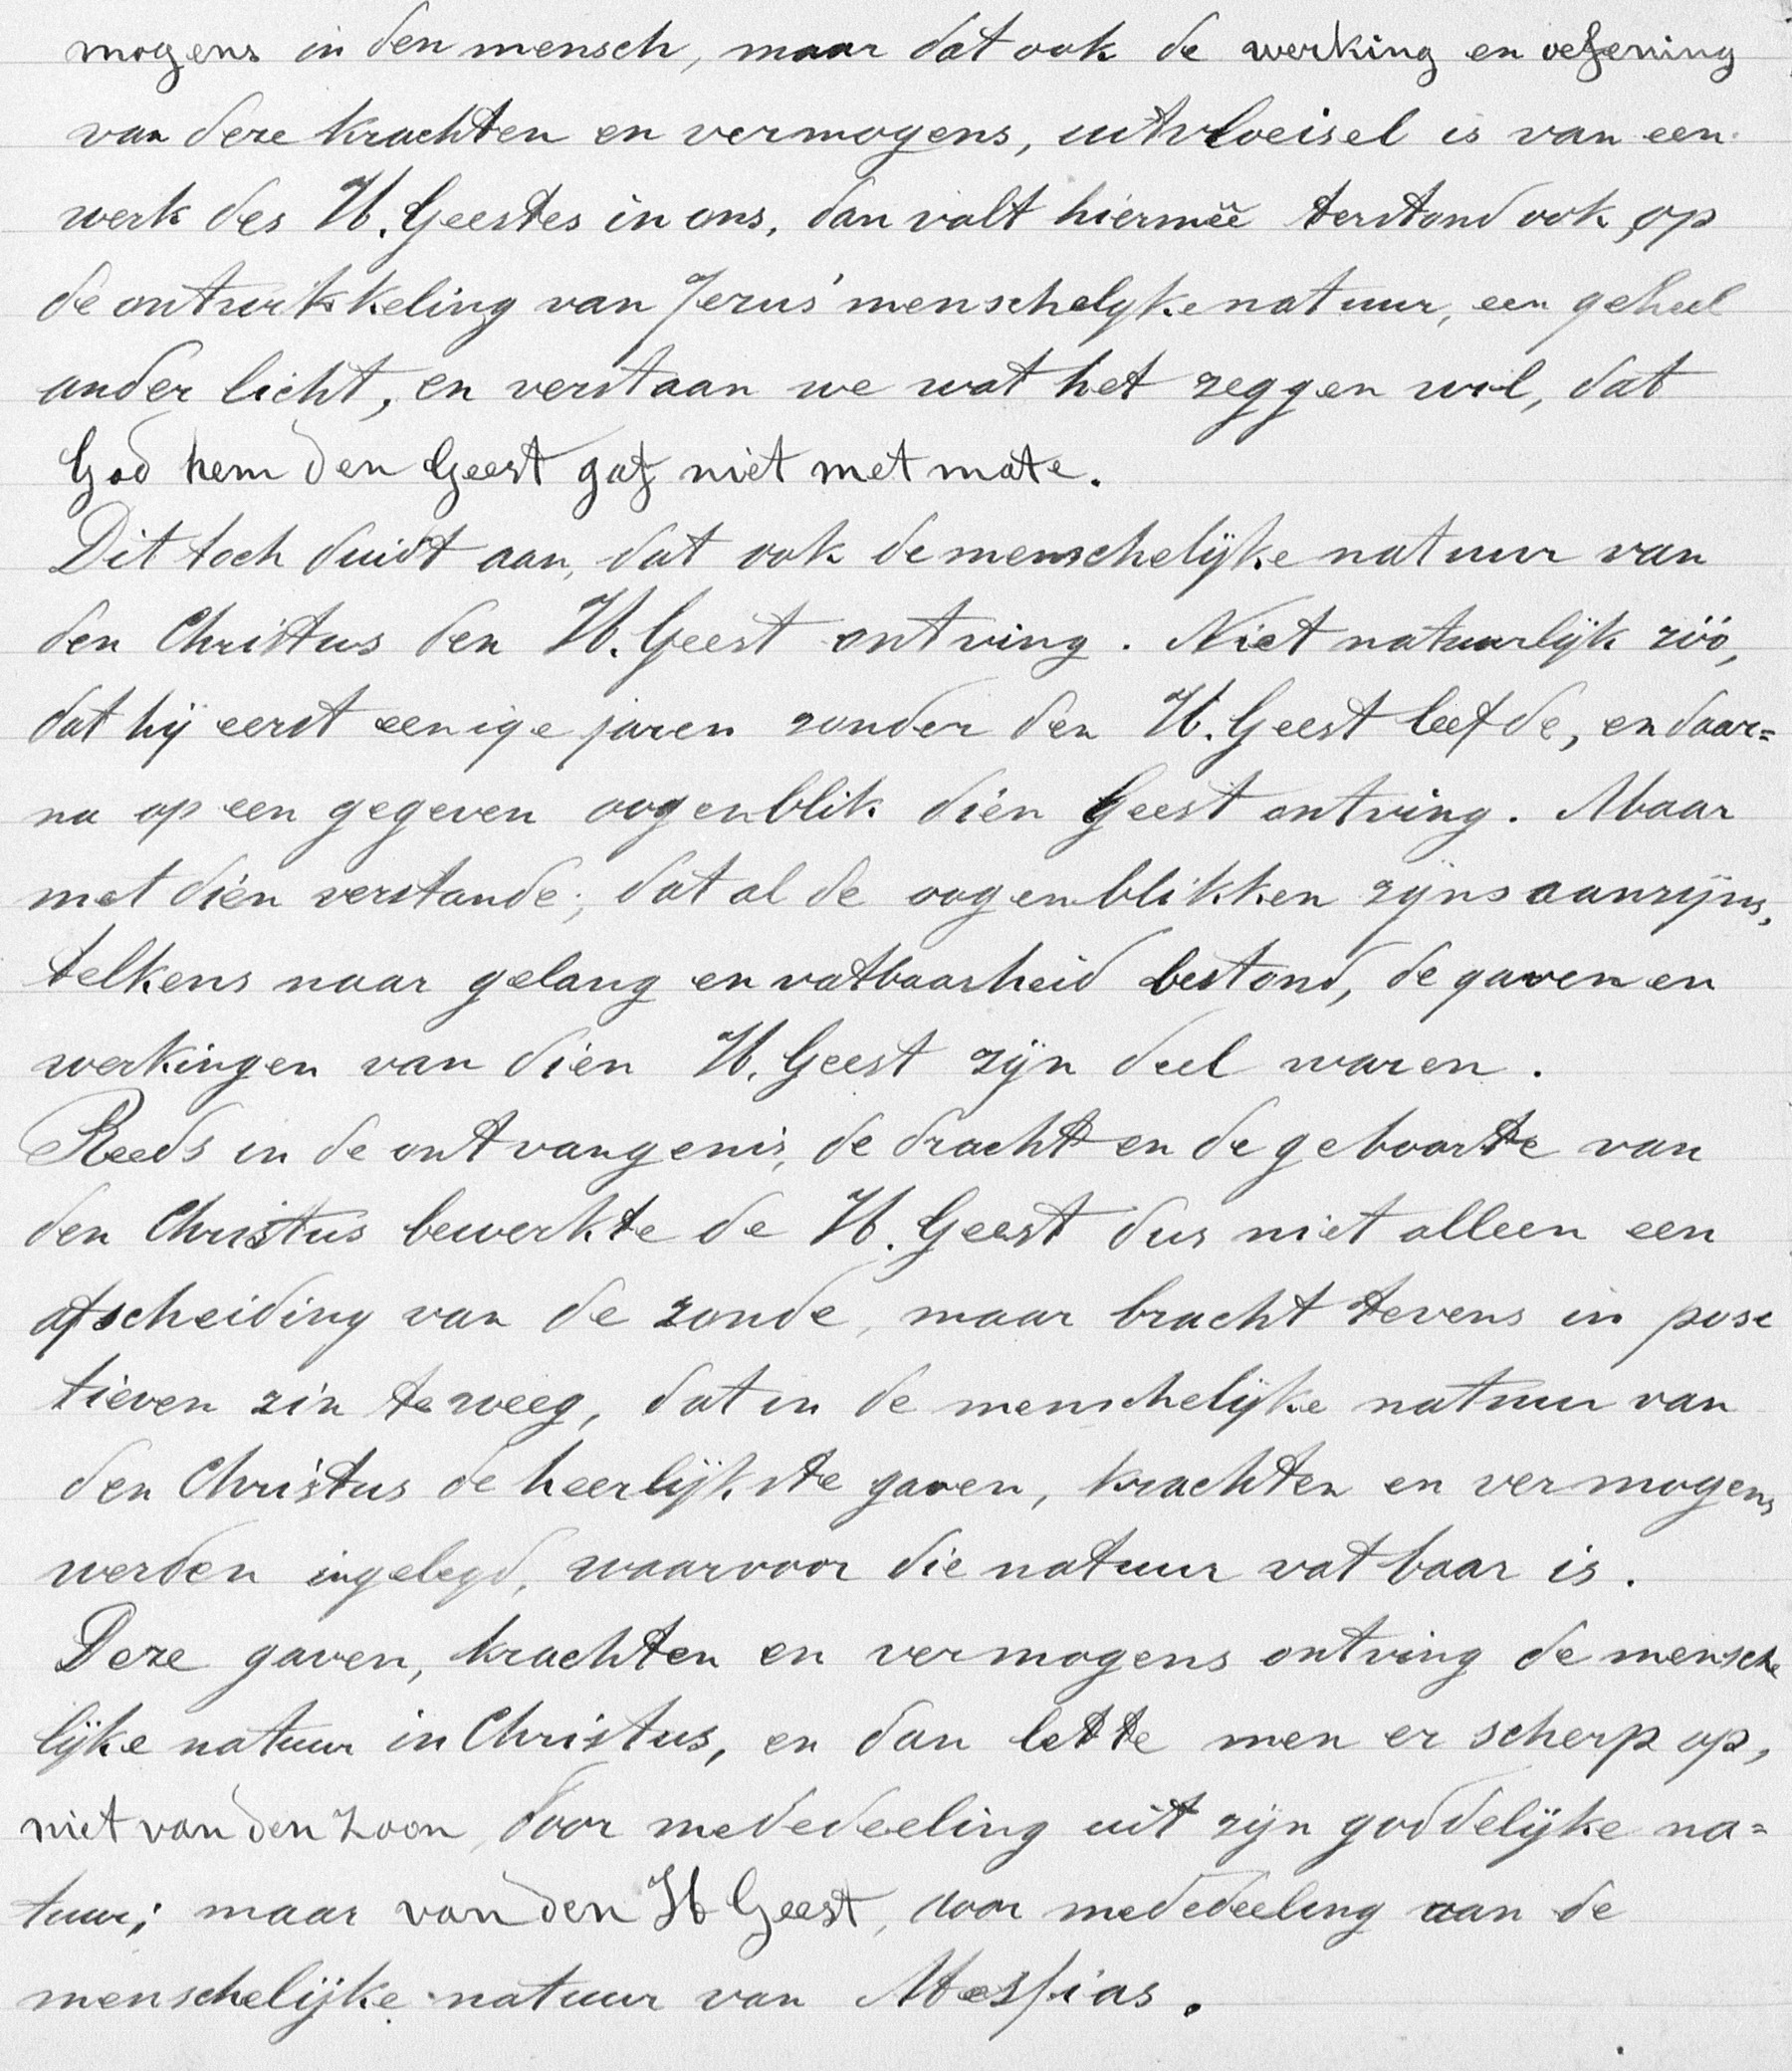 mogens in den mensch, maar dat ook de werking en oefening
van deze krachten en vermogens, uitvloeisel is van een
werk des H. Geestes in ons, dan valt hiermeê terstond ook op
de ontwikkeling van Jezus' menschelyke natuur, een geheel
ander licht, en verstaan we wat het zeggen wil, dat
God hem den Geest gaf niet met mate.
Dit toch duidt aan, dat ook de menschelijke natuur van
den Christus den H. Geest ontving. Niet natuurlijk zóó,
dat hij eerst eenige jaren zonder den H. Geest leefde, en daar=
na op een gegeven oogenblik dien Geest ontving. Maar
met dién verstande; dat al de oogenblikken zijns aanzijns,
telkens naar gelang en vatbaarheid bestond, de gaven en
werkingen van dien H. Geest zijn deel waren.
Reeds in de ontvangenis, de dracht en de geboorte van
den Christus bewerkte de H. Geest dus niet alleen een
afscheiding van de zonde, maar bracht tevens in posi
tieven zin te weeg, dat in de menschelijke natuur van
den Christus de heerlijkste gaven, krachten en vermogens
werden ingelegd, waarvoor die natuur vatbaar is.
Deze gaven, krachten en vermogens ontving de mensche
lijke natuur in Christus, en dan lette men er scherp op,
niet van den Zoon, door mededeeling uit zijn goddelijke na=
tuur; maar van den H Geest, door mededeeling aan de
menschelijke natuur van Messias.